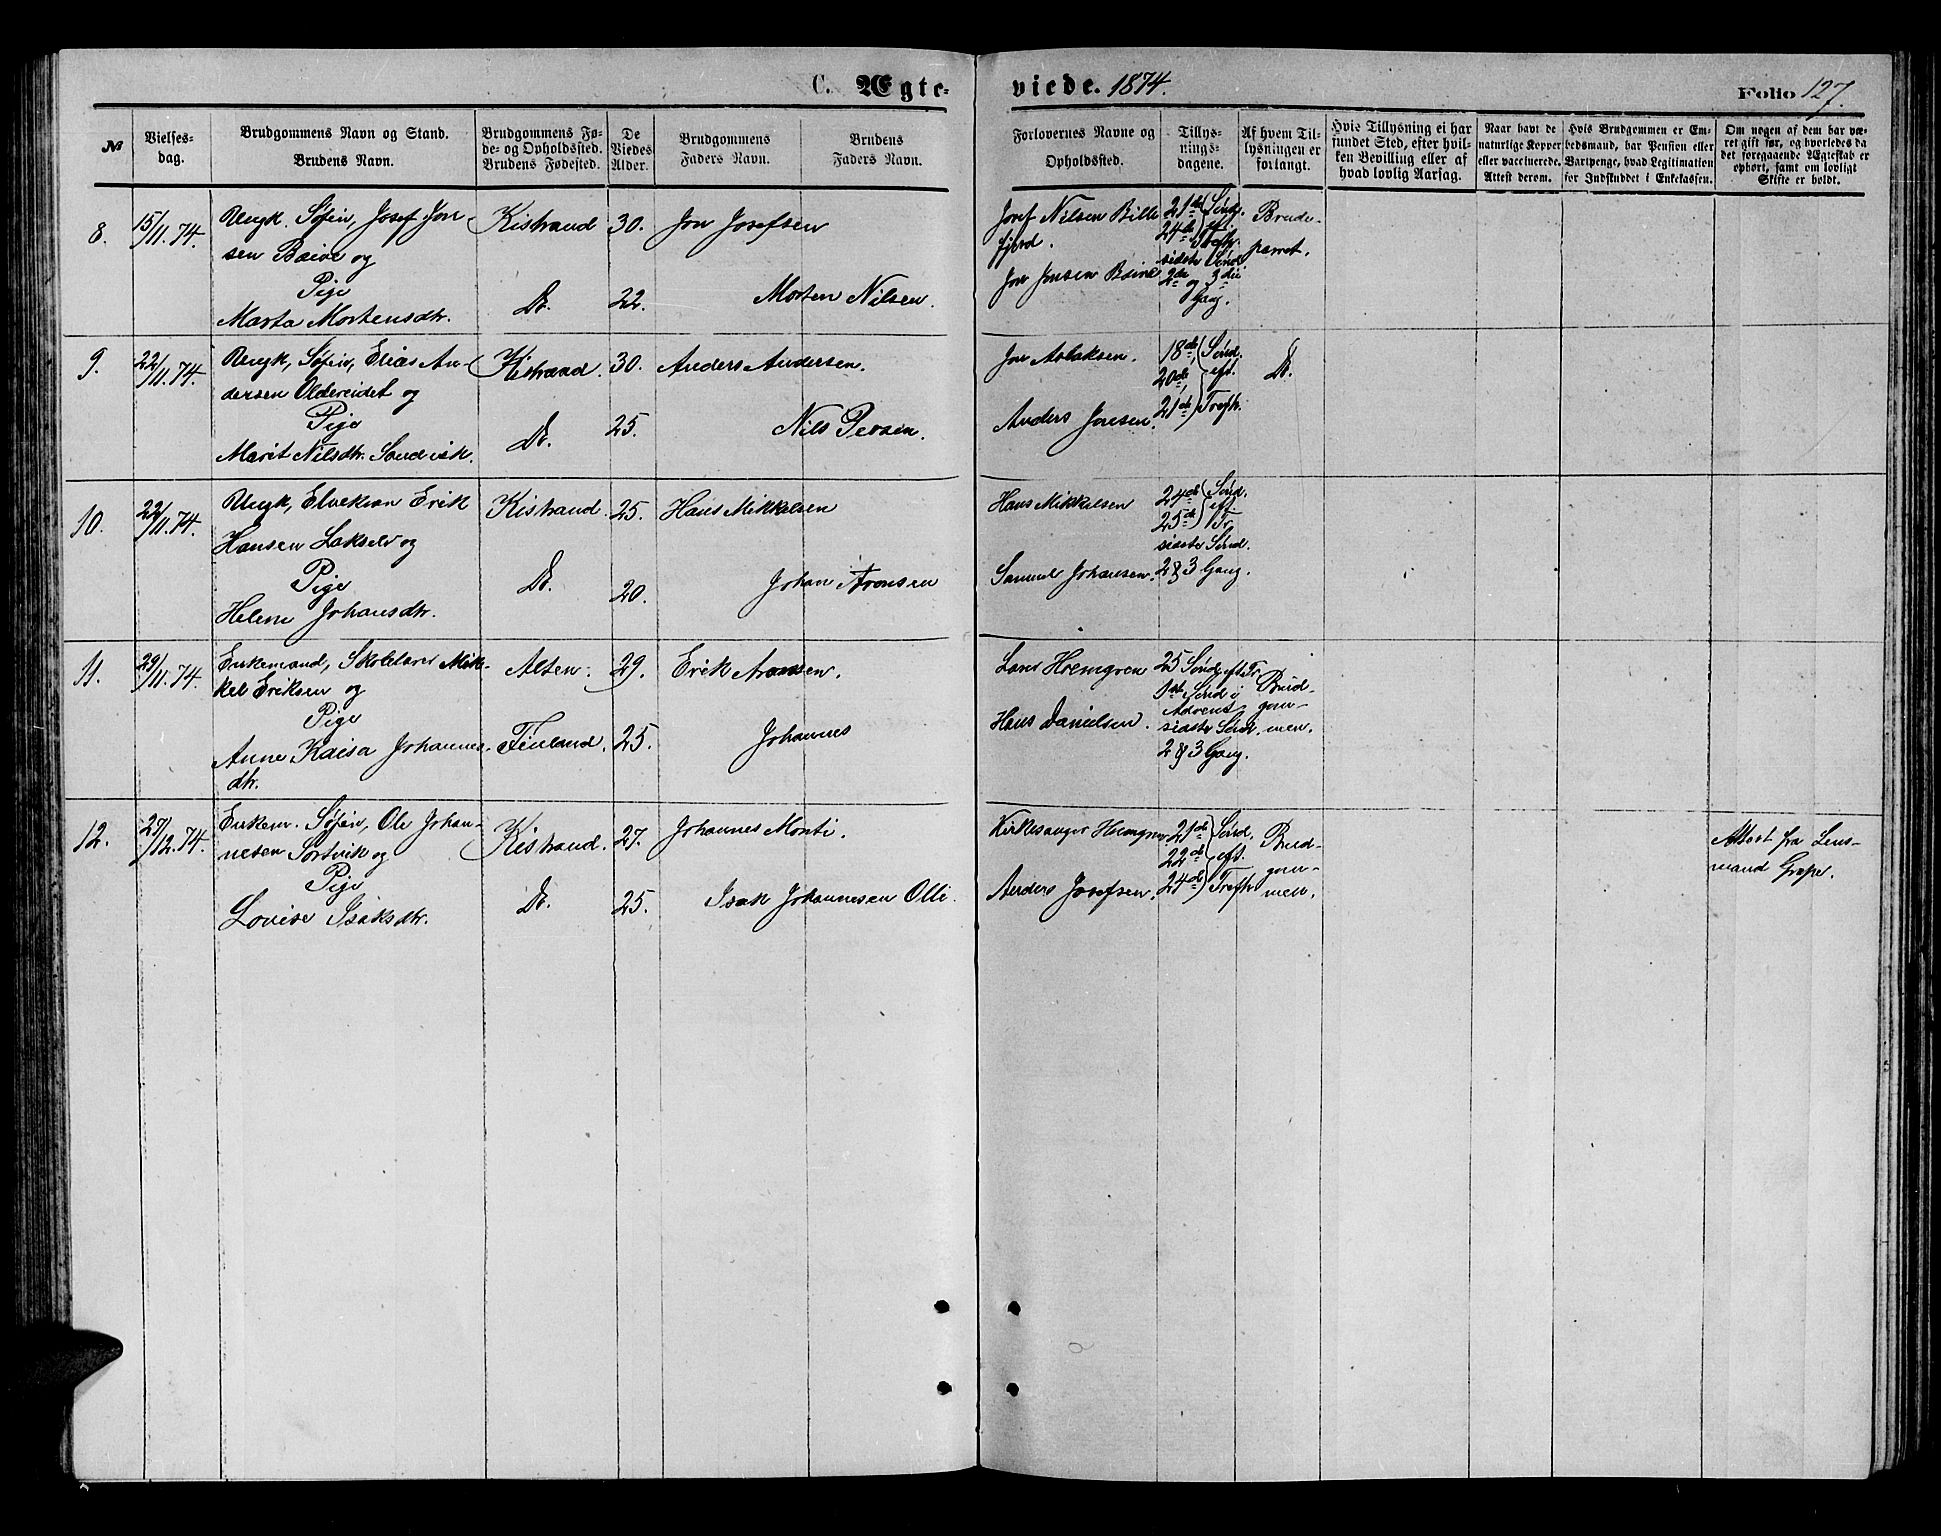 C. Ægteviede. 1874.
Folio 127.
№
Vielsesdag.
Brudgommens Navn og Stand.
Brudens Navn.
Brudgommens Føde- og Opholdsted.
Brudens Fødested.
De Viedes Alder.
Brudgommens Faders Navn.
Brudens Faders Navn.
Forlovernes Navne og Opholdsted.
Tillysningsdagene.
Af hvem Tillysningen er forlangt.
Hvis Tillysning ei har fundet Sted, efter hvilken Bevilling eller af hvad lovlig Aarsag.
Naar havt de naturlige Kopper eller vaccinerede. Attest derom.
Hvis Brudgommen er Embedsmand, har Pension eller Vartpenge, hvad Legitimation for Indskuddet i Enkekassen.
Om nogen af dem har været gift før, og hvorledes da det foregaaende Ægteskab er ophørt, samt om lovligt Skifte er holdt.
8.
15/11.74.
Ungk. Søfin, Josef Jon-
sen Baive og
Pige
Marta Mortensdtr.
Kistrand
Do.
30.
22.
Jon Josefsen
Morten Nilsen.
Josef Nilsen Bille-
fjord.
Jon Jonsen Baive
21de Sønd.
24de eft. Trefh.
sidste Sønd.
2de og 3die
Gang.
Brude-
parret.
9.
22/11.74.
Ungk, Søfin, Elias An-
dersen Oldereidet og
Pige
Marit Nilsdtr. Sandvik.
Kistrand.
Do.
30.
25.
Anders Andersen.
Nils Persen.
Jon Aslaksen.
Anders Jonsen.
18de Sønd.
20de eft.
21de Trefh.
Do.
10.
22/11.74.
Ungk, Elvekvæn Erik
Hansen Lakselv og
Pige
Helene Johansdtr.
Kistrand.
Do.
25.
20.
Hans Mikkelsen
Johan Aronsen
Hans Mikkelsen
Samuel Johansen.
24de Sønd.
25de eft. Tr.
sidste Sønd.
2 & 3 Gang.
11.
29/11.74.
Enkemand, Skolelærer Mik-
kel Eriksen og
Pige
Anne Kaisa Johannes-
dtr.
Alten.
Finland.
29.
25.
Erik Aronsen.
Johannes
Lars Hremgren
Hans Danielsen.
25 Sønd. eft. Tr.
1ste Sønd i
Advent
sidste Sønd.
2 & 3 Gang.
Brud-
gom-
men.
12.
27/12.74.
Enkem. Søfin, Ole Johan-
nesen Sortvik og
Pige
Lovise Isaksdtr.
Kistrand.
Do.
27.
25.
Johannes Monti.
Isak Johannesen Olli.
Kirkesanger Hremgren
Anders Josefsen.
21de Sønd.
22de eft.
24de Trefh
Brud-
gom-
men.
Attest fra Lens-
mand Grape.